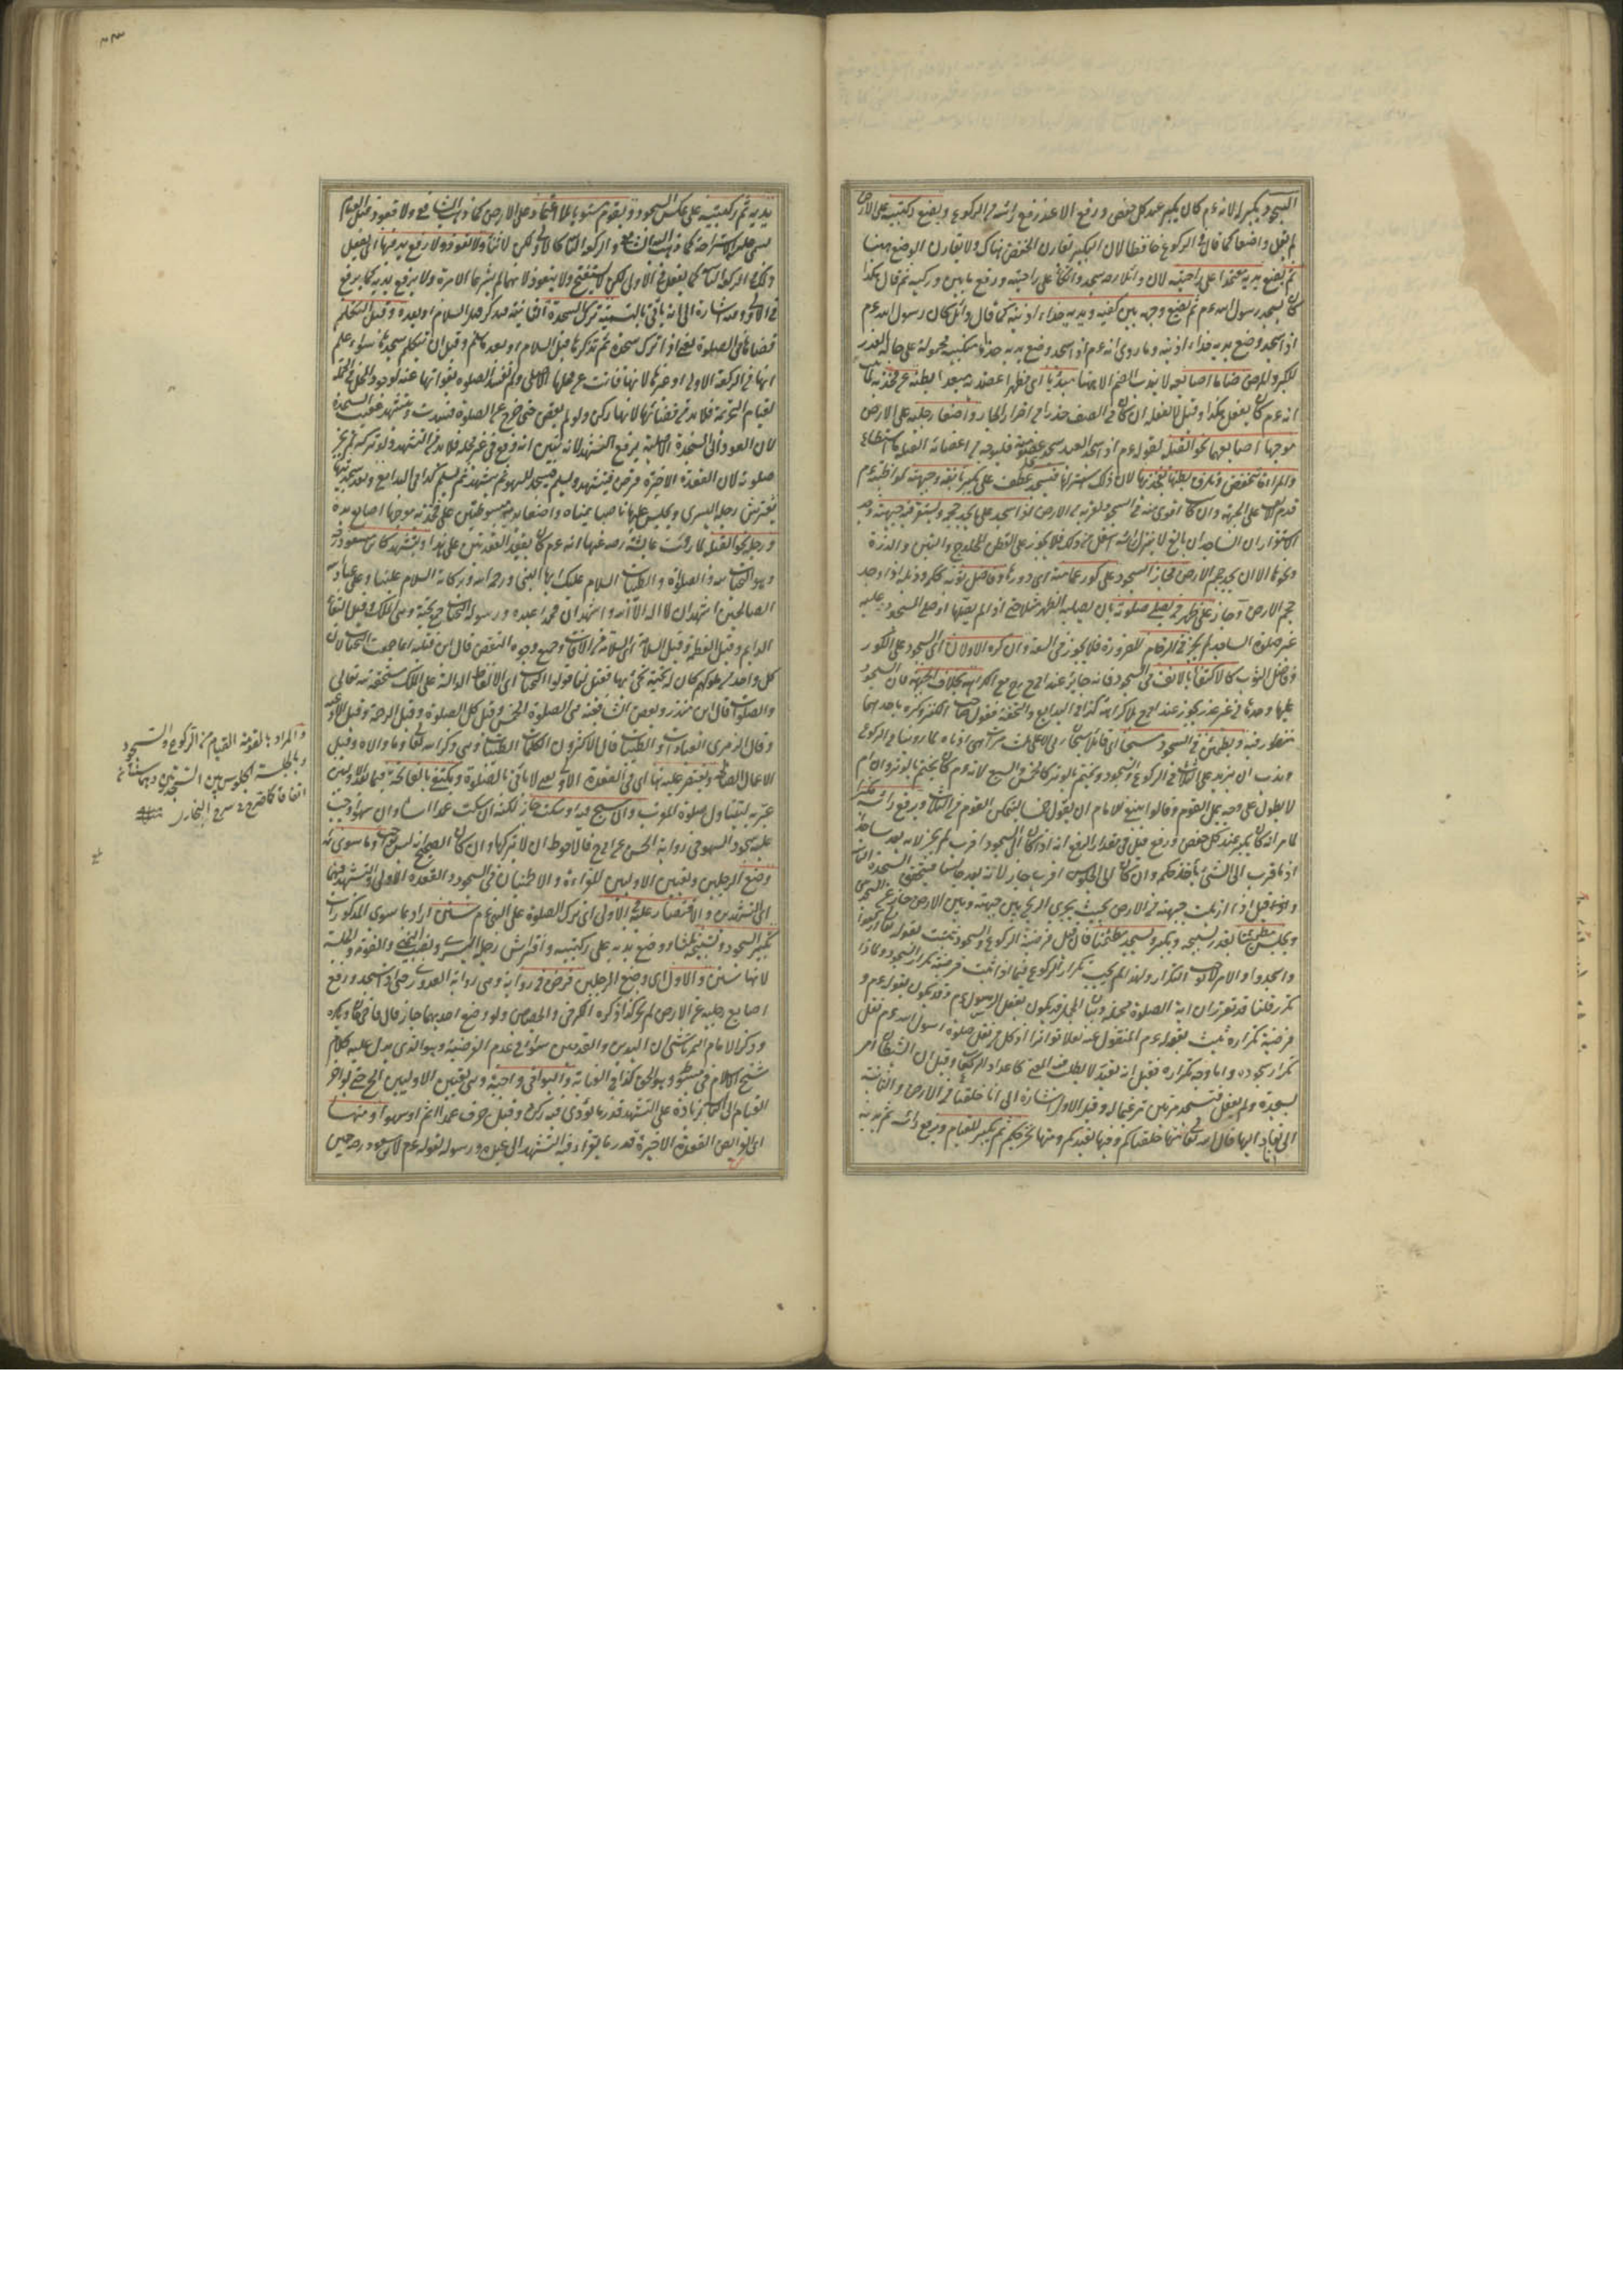 السجود يكبر لانه عم كان يكبر عند كل خفض ورفع الا عند رفع رأسه من الركوع ويضع ركبتيه على الارض
لم يقل واضعا كما قال في الركوع خافضا لان التكبير تقارن الخفض هناك ولا يقارن الوضع ههنا
ثم يضع يديه معتمدا على راحتيه لان وائلا رضه سجد واتكأ على راحتيه ورفع ثم قال هكذا
كان يسجد رسول الله عم ثم يضع وجهه بين كفيه ويديه حذاء اذنيه كما قال وائل كان رسول الله عم
اذا سجد وضع يديه حذاء اذنيه وما روى انه عم اذا سجد وضع يديه حذو منكبيه محمولة على حالة العذر
للكبر والمرض ضاما اصابعه لا يندب الضم الا ههنا مبديا اى مظهرا عضديه مبعدا بطنه عن فخذيه
انه عم كان يفعل هكذا وقيل لا يفعله ان كان في الصف حذرا من اضرار الجار واضعا رجليه على الارض
موجها اصابعهما نحو القبلة لقوله عم اذا سجد العبد سجد كل عضو منه فليوجه من اعضائه القبلة ما استطاع
والمرأة تنخفض وتلزق بطنها بفخذيها لان ذلك استر لها فيسجد عطف على يكبر بانفه وجبهته لمواظبته عم
قدم الانف على الجبهة وان كان اقوى منه في السجود لقربه من الارض اذا سجد على ما يجد حجمه ويستقر فيه جبهته وحد
الاستقرار ان الساجد ان بالغ لا ينزل رأسه اسفل من ذلك فلا يجوز على القطن المحلوج والتبن والذرة
ونحوها الا ان يجد حجم الارض فجاز السجود على كور عمامته اى دورها وفاضل ثوبه ككمه وذيله اذا وجد
حجم الارض وجاز على ظهر من يصلى صلوته بان يصليا الظهر مثلا حتى اذا لم يصلها او صلى المسجود عليه
غير صلوة الساجد لم يجز في الزحام للضرورة فلا يجوز في السعة وان كره الاولان اى السجود على الكور
وفاضل الثوب كالاكتفاء بالانف في السجود فانه جائز عند ابى ح رح مع الكراهة بخلاف الجبهة فان السجود
عليها وحدها من غير عذر يجوز عند ابى ح بلا كراهة كذا في البدايع والتحفة
فيه ويطمئن في السجود مسبحا اى قائلا سبحان ربى الاعلى ثلث مرات اى ادناه لما روينا في الركوع
وندب ان يزيد على الثلث في الركوع والسجود ويختم بالوتر كالخمس والسبع لانه عم كان يختم بالوتر وان ام
لا يطول على وجه يمل القوم وقالوا ينبغي للامام ان يقول خمسا ليتمكن القوم من الثلث ويرفع رأسه مكبرا
لما مر انه كان يكبر عند كل خفض ورفع قيل في مقدار الرفع انه اذا كان الى السجود اقرب لم يجز لانه يعد ساجدا
اذ ما قرب الى الشئ يأخذ حكمه وان كان الى الجلوس اقرب جاز لانه يعد جالسا فيتحقق السجدة الثانية
وقيل اذا ازيلت جبهته من الارض بحيث يجرى الريح بين جبهته وبين الارض جاز عن السجدتين
ويجلس مطمئنا بقدر تسبيحة ويكبر ويسجد مطمئنا فان قيل فرضية الركوع والسجود تثبت بقوله تعالى اركعوا
واسجدوا والامر لا يوجب التكرار ولهذا لم يجب تكرار الركوع فبماذا ثبت فرضية تكرار السجود ولماذا
تكرر قلنا قد تقرر ان اية الصلوة مجملة وبيان المجمل قد يكون بفعل الرسول عم وقد يكون بقوله عم و
فرضية تكراره تثبت بفعله عم المنقول عنه نقلا تواترا اذ كل من نقل صلوة رسول الله عم نقل
تكرار سجوده واما وجه تكراره فقيل انه تعبد لا يطلب فيه المعنى كاعداد الركعات وقيل ان الشيطان امر
بسجدة ولم يفعل فنسجد مرتين ترغيما له وقيل الاولى اشارة الى انا خلقنا من الارض والثانية
الى انا نعاد اليها قال الله تعالى منها خلقناكم وفيها نعيدكم ومنها نخرجكم ثم يكبر للقيام ويرفع رأسه ثم يديه
يديه ثم ركبتيه على عكس السجود ويقوم مستويا بلا اعتماد على الارض كما ذهب اليه الشافعي ولا قعود قبل القيام
يسمى جلسة الاستراحة كما ذهب اليه الشافعي والركعة الثانية كالاولى لكن لا ثناء ولا تعوذ ولا رفع يد فيها اى يفعل
ذلك في الركعة الثانية كما يفعل في الاولى لكن لا يستفتح ولا يتعوذ لانهما لم يشرعا الا مرة ولا يرفع يديه كما يرفع
في الاولى وفيه اشارة الى انه يأتى بالتسمية ترك السجدة الثانية فتذكر قبل السلام او بعده وقبل التكلم
قضاها في الصلوة يعنى اذا ترك سجدة ثم تذكرها قبل السلام او بعد ما سلم وقبل ان يتكلم سجدها سواء علم
انها من الركعة الاولى او غيرها لانها فاتت عن محلها الاصلى ولم تفسد الصلوة بفواتها عنه لوجود المحل في الجملة
لقيام التحريمة فلا بد من قضائها لانها ركن ولو لم يقض حتى خرج عن الصلوة فسدت ويتشهد عقيب السجدة
لان العود الى السجدة الاصلية يرفع التشهد لانه تبين انه وقع في غير محله فلا بد من التشهد ولو تركه لم يجز
صلوته لان القعدة الاخيرة فرض فيتشهد ويسلم ويسجد للسهو ثم يتشهد ثم يسلم كذا في البدايع وبعد سجدتيها
يفترش رجله اليسرى ويجلس عليها ناصبا يمناه واضعا يديه مبسوطتين على فخذيه موجها اصابع يده
ورجله نحو القبلة لما روت عايشة رضه عنها انه عم كان يقعد القعدتين على هذا ويتشهد كابن مسعود رضه
وهو التحيات لله والصلوات والطيبات السلام عليك ايها النبي ورحمة الله وبركاته السلام علينا وعلى عباد الله
الصالحين اشهد ان لا اله الا الله واشهد ان محمدا عبده ورسوله التحيات جمع تحية وهى الملك وقيل البقاء
الدايم وقيل العظمة وقيل السلامة اى السلامة من الآفات وجميع وجوه النقص قال ابن قتيبة انما جمعت التحيات لان
كل واحد من ملوكهم كان له تحية يحيى بها فقيل لنا قولوا التحيات اى الالفاظ الدالة على الملك مستحقة لله تعالى
والصلوات قال ابن منذر وبعض الشافعية هى الصلوة الخمس وقيل كل الصلوة وقيل الرحمة وقيل الادعية
وقال الازهرى العبادات والطيبات قال الاكثرون الكلمات الطيبات وهى ذكر الله تعالى وما والاه وقيل
الاعمال الصالحة ويقتصر عليه فيها اى في القعدة الاولى يعنى لا يأتى بالصلوة ويكتفى بالفاتحة فيما بعد الاوليين
عبر به ليتناول صلوة المغرب والا سبح فيه او سكت جاز لكنه ان سكت عمدا اساء وان سهوا وجب
عليه سجود السهو في رواية الحسن عن ابى ح فالاحوط ان لا يتركها وان كان الصحيح انه ليس بواجب وما سوى
وضع الرجلين وتعيين الاوليين للقراءة والاطمينان في السجود والقعدة الاولى والتشهد فيهما
اى التشهدين والاقتصار عليه في الاولى اى ترك الصلوة على النبي عم سنن اراد بما سوى المذكورات
تكبير السجود وتسبيحه ثلثا ووضع يديه على ركبتيه وافتراش رجله اليسرى ونصب اليمنى والقومة والجلسة
لانها سنن والاول اى وضع الرجلين فرض في رواية وهى رواية القدورى حتى اذا سجد ورفع
اصابع رجليه عن الارض لم يجز كذا ذكره الكرخى والجصاص ولو وضع احديهما جاز قال قاضيخان ويكره
وذكر الامام التمرتاشى ان اليدين والقدمين سواء في عدم الفرضية وهو الذى يدل عليه كلام
شيخ الاسلام في مبسوطه وهو الحق كذا في العناية والبواقى واجبة وهى تعيين الاوليين الخ حتى لو اخر
القيام الى الثالثة بزيادة على التشهد قدر ما يؤدى فيه ركن وقيل حرف عمدا اثم او سهوا ومنها
اى الفرائض القعدة الاخيرة قدر ما يقرأ فيه التشهد الى عبده ورسوله لقوله عم لابن مسعود رضه حين
والمراد بالقومة القيام من الركوع والسجود
وبالجلسة الجلوس بين السجدتين وهما سنتان
اتفاقا كما صرح في شرح البخارى